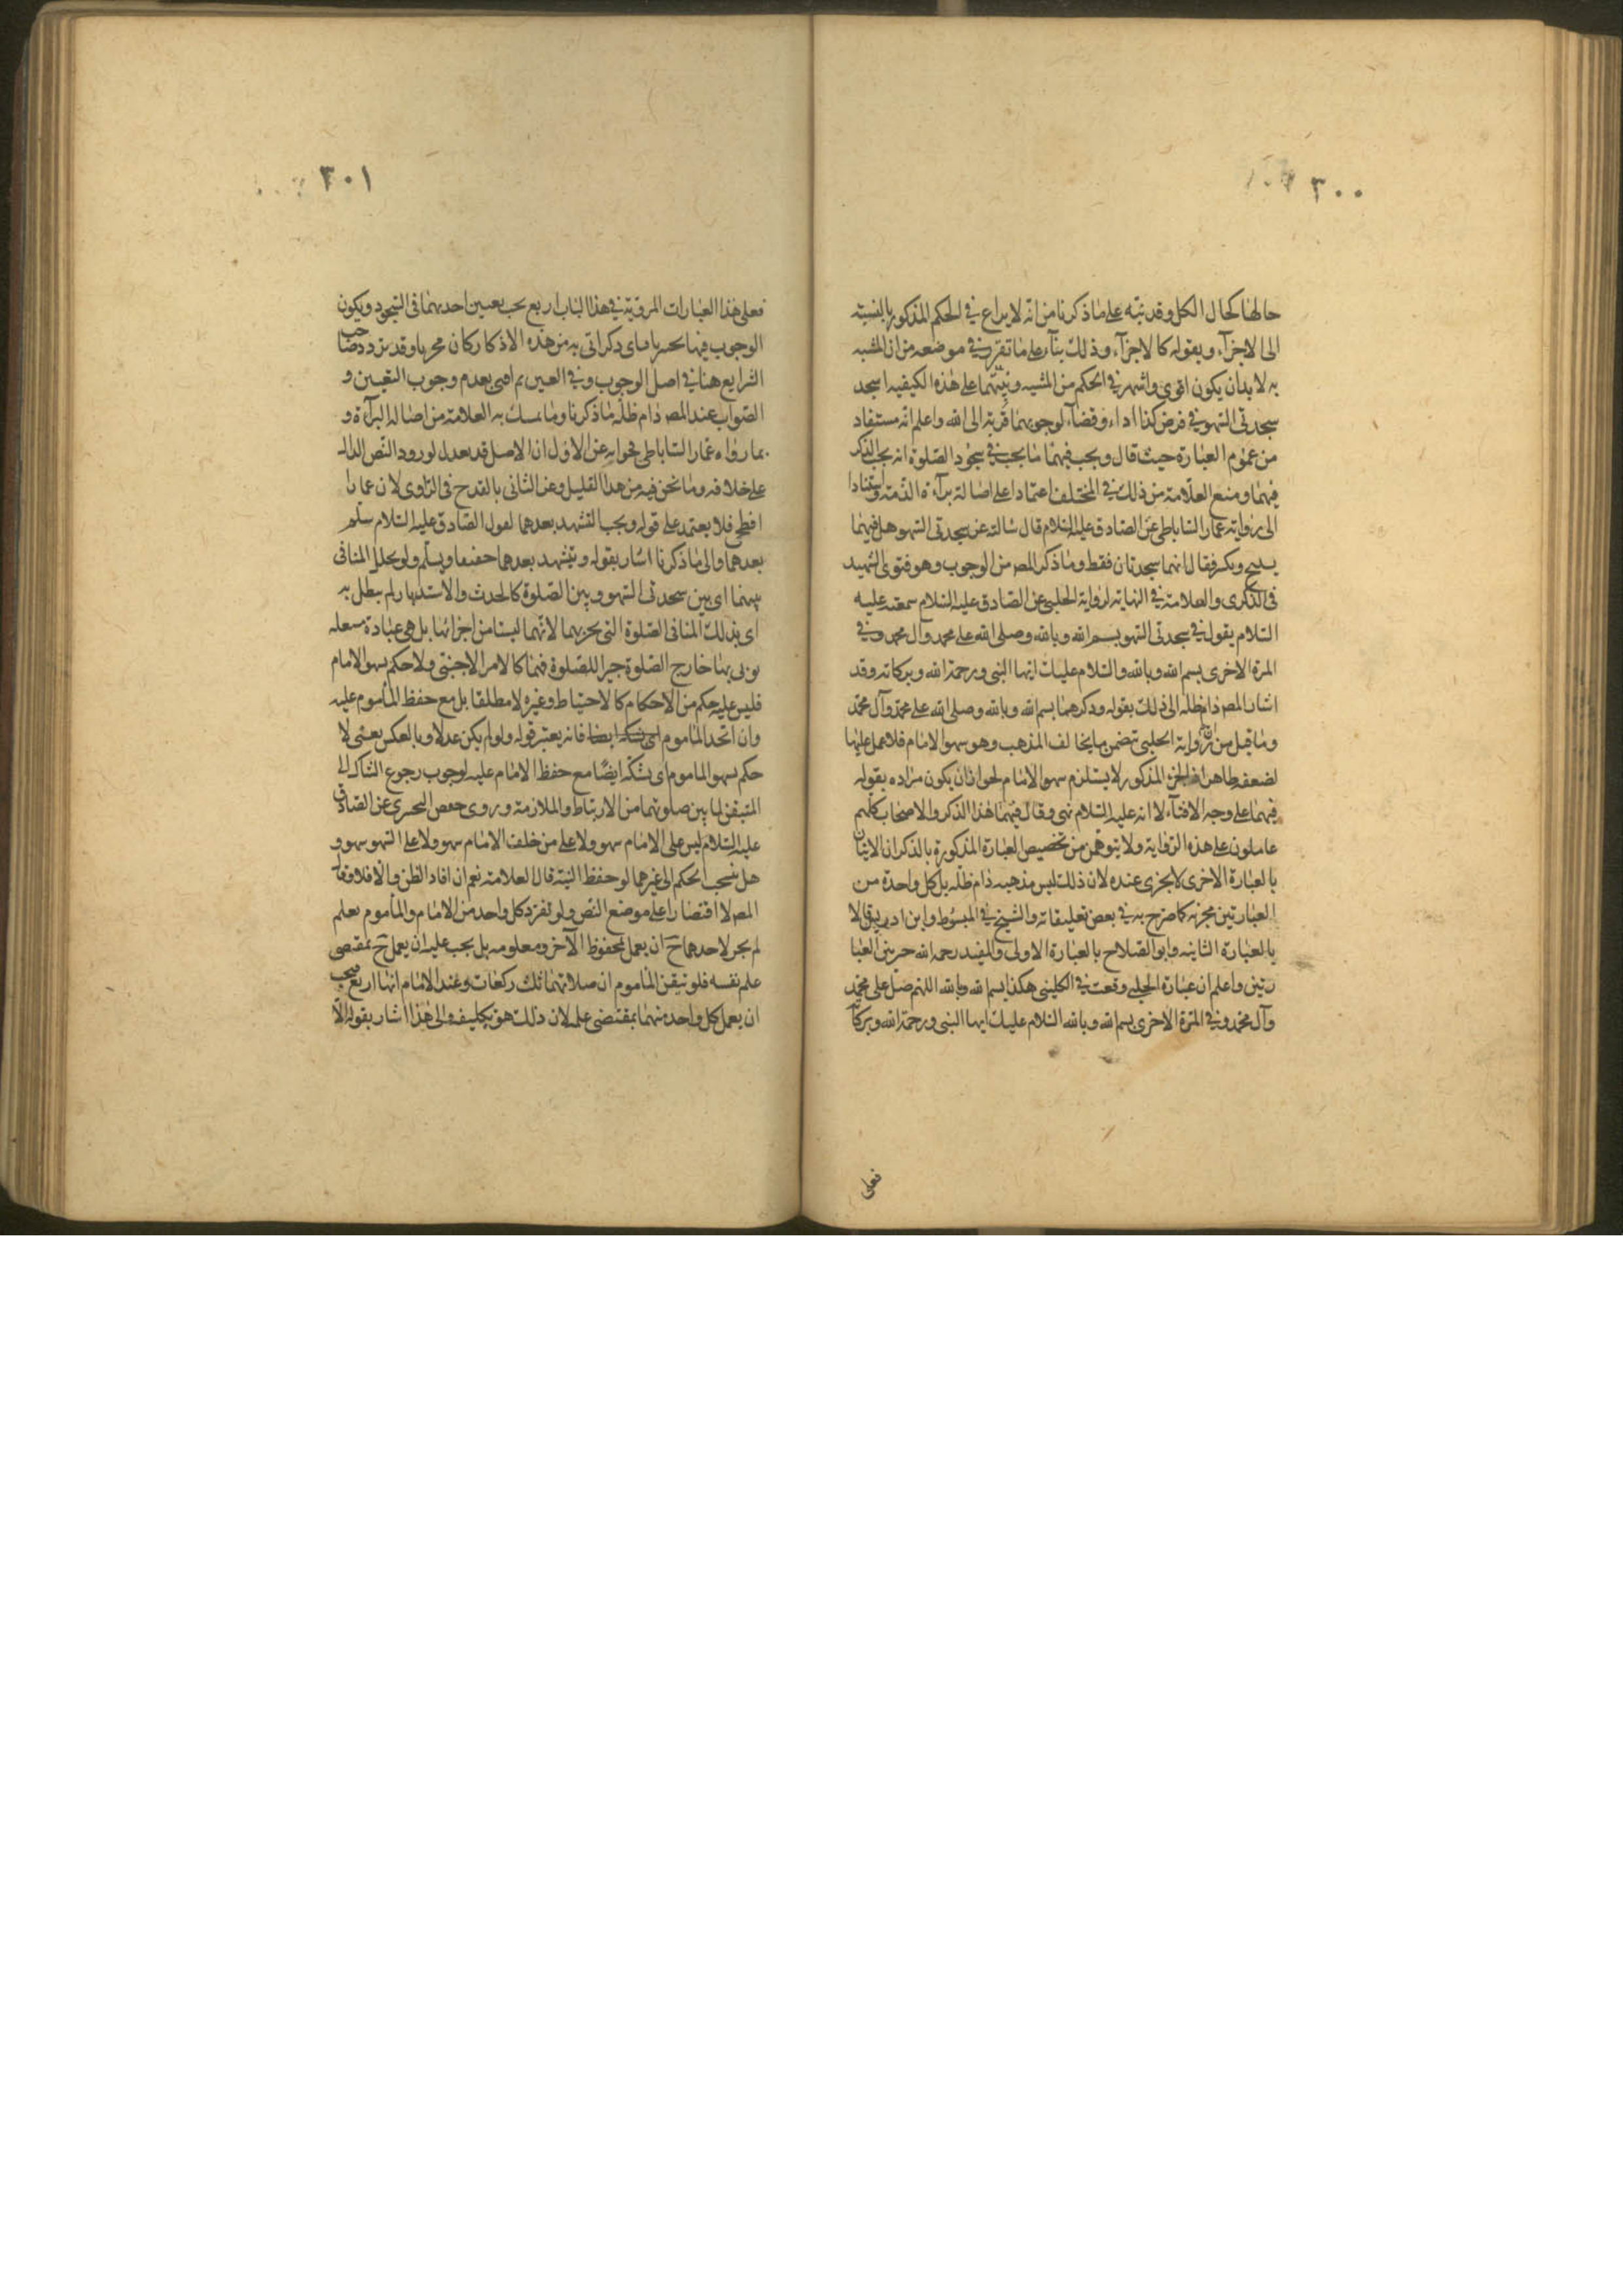 ٣٠٠
حالها كحال الكل وقد نبّه على ما ذكرنا من انّه لا يراع في الحكم المذكور بالنسبة
الى الاجزآء وبقوله كالاجزآء وذلك بنآء على ما تقرر في موضعه من ان المشبه
به لا بد ان يكون اقوى واشهر في الحكم من المشبه ونيّتهما على هذه الكيفية اسجد
سجدتى السهو في فرض كذا اداء وقضاء لوجوبهما قربة الى الله واعلم انّه مستفاد
من عموم العبارة حيث قال ويجب فيهما ما يجب في سجود الصلوة انه يجب الذكر
فيهما ومنع العلّامة من ذلك في المختلف اعتمادا على اصالة برآءة الذمة واستنادا
الى رواية عمار الساباطى عن الصادق عليه السلام قال سالته عن سجدتى السهو هل فيهما
تسبيح وتكبر فقال انهما سجدتان فقط وما ذكر المص من الوجوب وهو فتوى الشهيد
فى الذكرى والعلامة في النهاية لرواية الحلبى عن الصادق عليه السلام سمعته عليه
السلام يقول في سجدتى السهو بسم الله وبالله وصلى الله على محمد وآل محمد وفي
المرة الاخرى بسم الله وبالله والسلام عليك ايها النبى ورحمة الله وبركاته وقد
اشار المص دام ظله الى ذلك بقوله وذكرهما بسم الله وبالله وصلى الله على محمد وآل محمد
وما قيل من ان رواية الحلبى تتضمن ما يخالف المذهب وهو سهو الامام فلا عمل عليها
لضعفه ظاهر اذ الجزء المذكور لا يستلزم سهو الامام لجواز ان يكون مراده بقوله
فيهما على وجه الافتآء لا انه عليه السلام نسى وقال فيهما هذا الذكر والاصحاب كلهم
عاملون على هذه الرواية ولا يتوهمن من تخصيص العبارة المذكورة بالذكر ان الاتيان
بالعبارة الاخرى لا يجزى عنده لان ذلك ليس مذهبه دام ظله بل كل واحدة من
العبارتين مجزية كما صرّح به في بعض تعليقاته والشيخ في المبسوط وابن ادريس قالا
بالعبارة الثانية وابو الصلاح بالعبارة الاولى والمفيد رحمه الله خير بين العبا
رتين واعلم ان عبارة الحلبى وقعت في الكلينى هكذا بسم الله وبالله اللهم صل على محمد
وآل محمد وفي المرة الاخرى بسم الله وبالله السلام عليك ايها النبى ورحمة الله وبركا
فعلى
٣٠١
فعلى هذا العبارات المروية في هذا الباب اربع يجب تعيين احديهما فى السجود ويكون
الوجوب فيها تخييريا فباى ذكر اتى به من هذه الاذكار كان مجزيا وقد تردد صاحب
الشرايع هنا في اصل الوجوب وفي التعيين ثم افتى بعدم وجوب التعيين و
الصواب عند المص دام ظله ما ذكرنا وما تمسك به العلامة من اصالة البرآءة و
بما رواه عمار الساباطى فجوابه عن الاول ان الاصل قد يعدل لورود النص الدال
على خلافه وما نحن فيه من هذا القليل وعن الثانى بالقدح فى الراوى لان عمارا
افطحى فلا يعتمد على قوله ويجب التشهد بعدهما لقول الصادق عليه السلام سلّم
بعدهما والى ما ذكرنا اشار بقوله ويتشهد بعدهما خفيفا ويسلّم ولو تخلل المنافى
بينهما اى بين سجدتى السهو وبين الصلوة كالحدث والاستدبار لم يبطل به
اى بذلك المنافى الصلوة التى يجبر بهما لانهما ليستا من اجزائها بل هى عبادة مستقلة
يؤتى بها خارج الصلوة جبرا للصلوة فهما كالامر الاجنبى ولا حكم بسهو الامام
فليس عليه حكم من الاحكام كالاحتياط وغيره لا مطلقا بل مع حفظ المأموم عليه
وان اتحد المأموم اى شكه ايضا فانه يعتبر قوله ولو لم يكن عدلا وبالعكس يعنى لا
حكم بسهو الماموم اى بشكّه ايضًا مع حفظ الامام عليه لوجوب رجوع الشاك الى
المتيقن لما بين صلوتهما من الارتباط والملازمة وروى حفص البحترى عن الصادق
عليه السلام ليس على الامام سهو ولا على من خلف الامام سهو ولا على السهو سهو و
هل ينسحب الحكم الى غيرهما لو حفظ النية قال العلامة نعم ان افاد الظن والا فلا وقال
المص لا اقتصارا على موضع النص ولو تفرد كل واحد من الامام والمأموم بعلم
لم يجز لاحدهما ح ان يعمل بمحفوظ الآخر ومعلومه بل يجب عليه ان يعمل ح بمقتضى
علم نفسه فلو تيقن المأموم ان صلاتهما ثلث ركعات وعند الامام انها اربع يجب
ان يعمل كل واحد منهما بمقتضى علمه لان ذلك هو تكليفه والى هذا اشار بقوله الّا